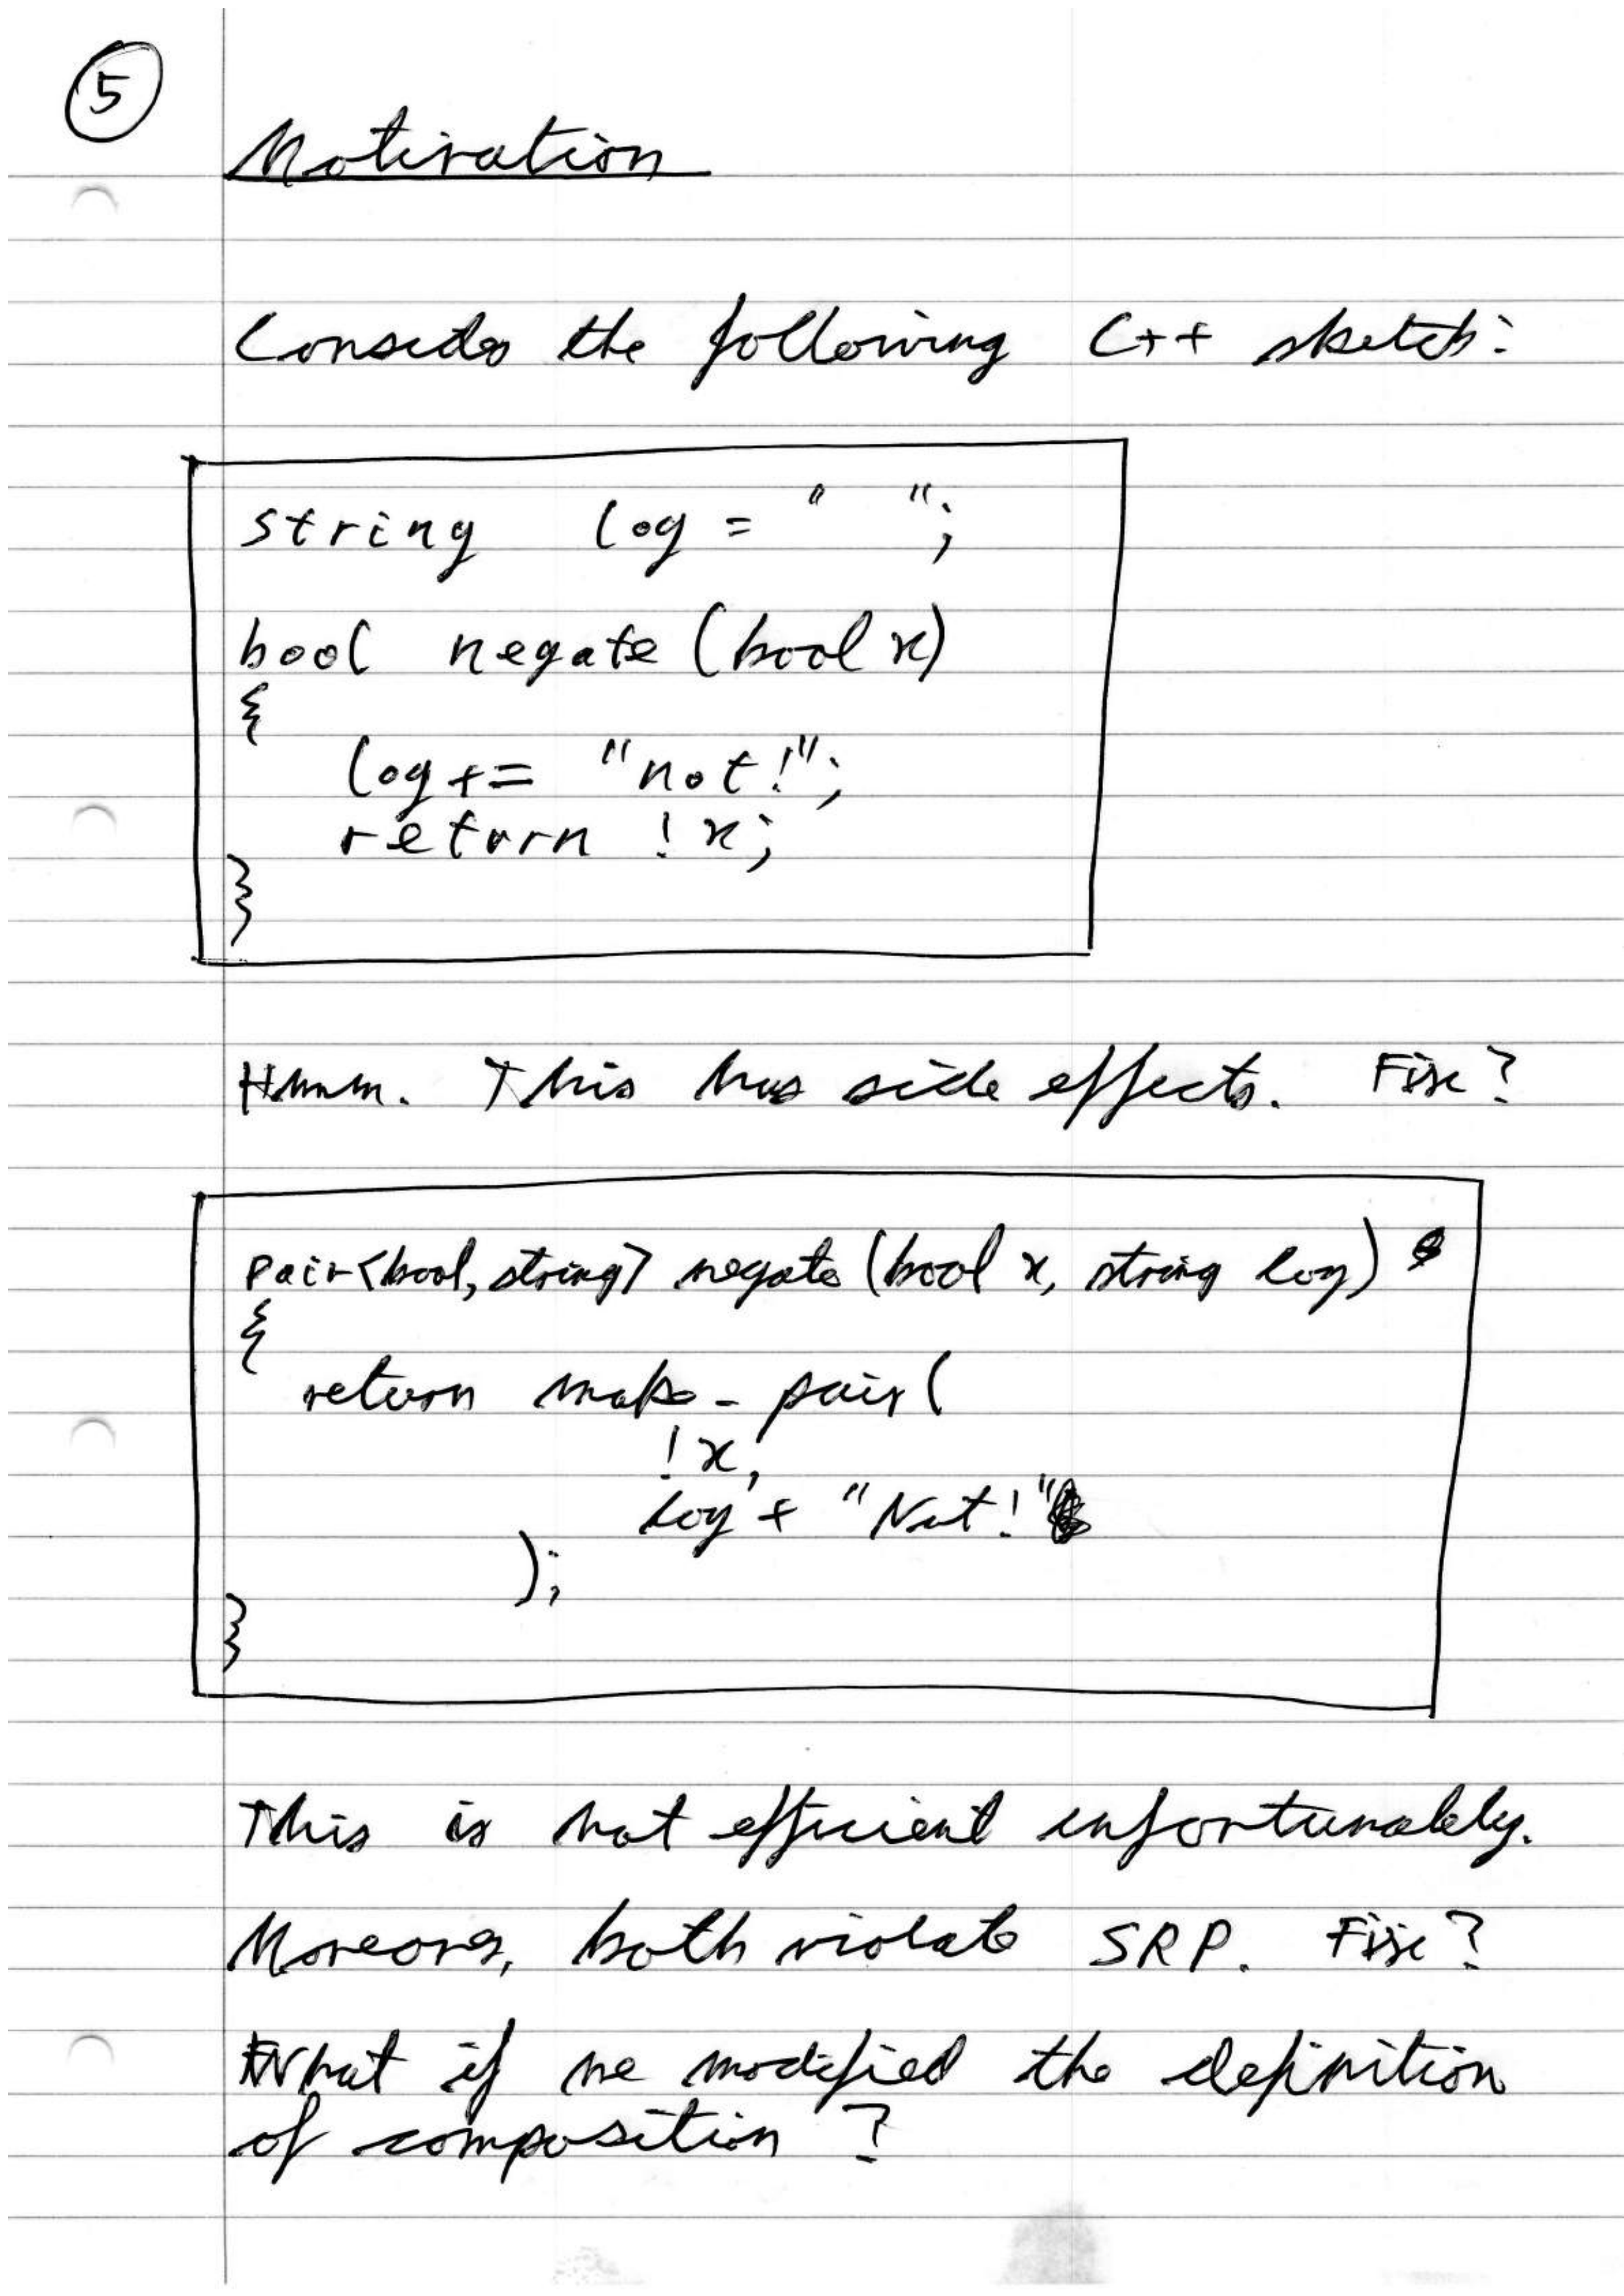 5
Motivation
Consider the following C++ sketch:
string log = " ";
bool negate (bool x)
{
log += "not!";
return !x;
}
Hmmm. This has side effects. Fix?
pair<bool, string> negate (bool x, string log)
{
return make_pair(
!x,
log + "Not!"
);
}
This is not efficient unfortunately.
Moreover, both violate SRP. Fix?
What if we modified the definition
of composition?